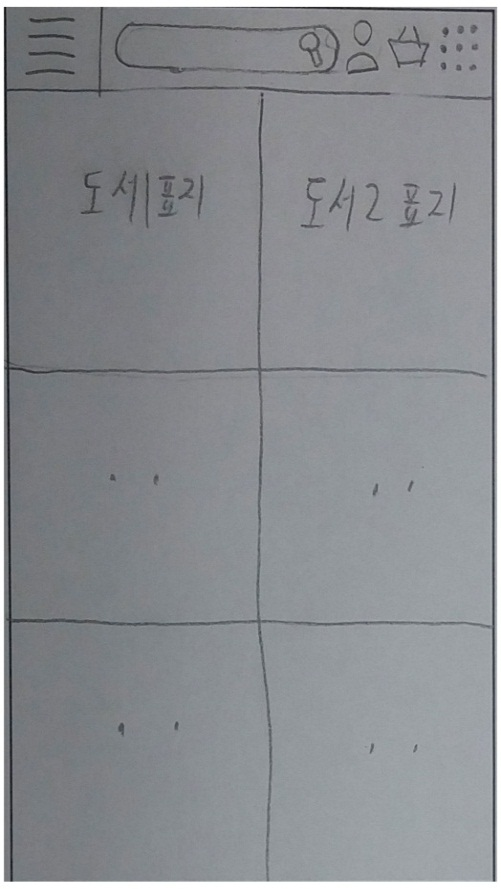 도서1 표지
도서2 표지
" "
" "
" "
" "